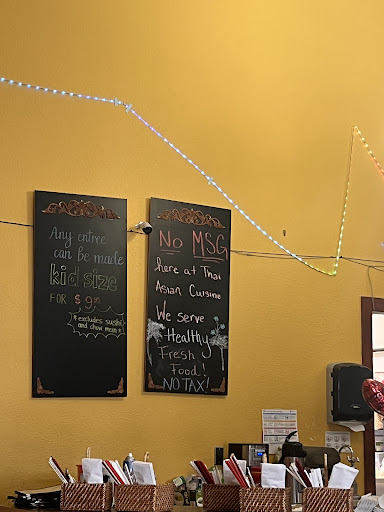 Any entree
can be made
kid size
FOR $9.95
* excludes sushi
and chow mein *
No MSG
here at Thai
Asian Cuisine
We serve
Healthy
Fresh
Food!
NO TAX!